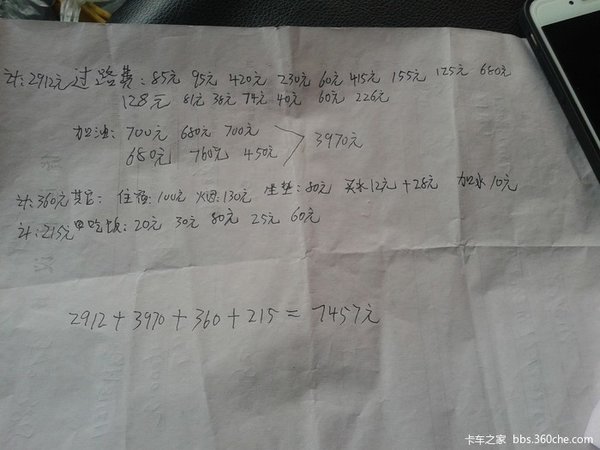 计:2912元 过路费:85元 95元 420元 230元 60元 415元 155元 125元 680元
128元 81元 38元 74元 40元 60元 226元
加油:700元 680元 700元
3970元
680元 760元 450元
计:360元 其它: 住宿:100元 烟:130元 坐垫:80元 买水12元+28元 加水10元
计:215元 吃饭:20元 30元 80元 25元 60元
2912+3970+360+215=7457元
卡车之家 bbs.360che.com